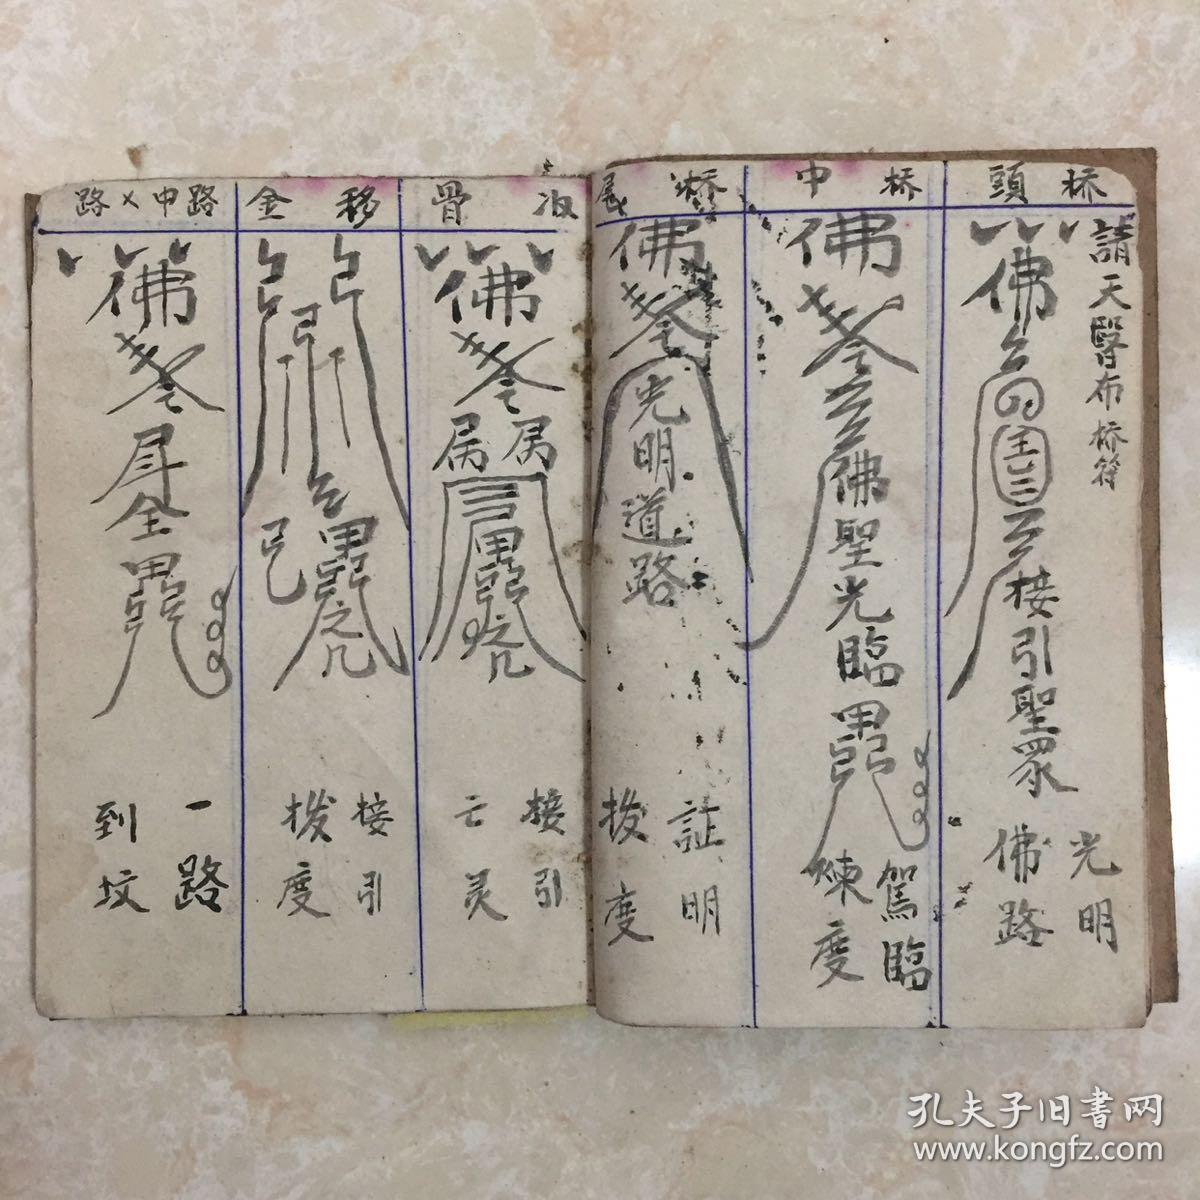 桥頭
請天醫布桥符
佛
接引聖眾
光明
佛路
桥中
佛
佛聖光臨
駕臨
煉度
桥尾
佛
光明道路
証明
拔度
骨
佛
接引
亡灵
移金
接引
拔度
路中×路
佛
一路
到坟
孔夫子旧書网
www.kongfz.com